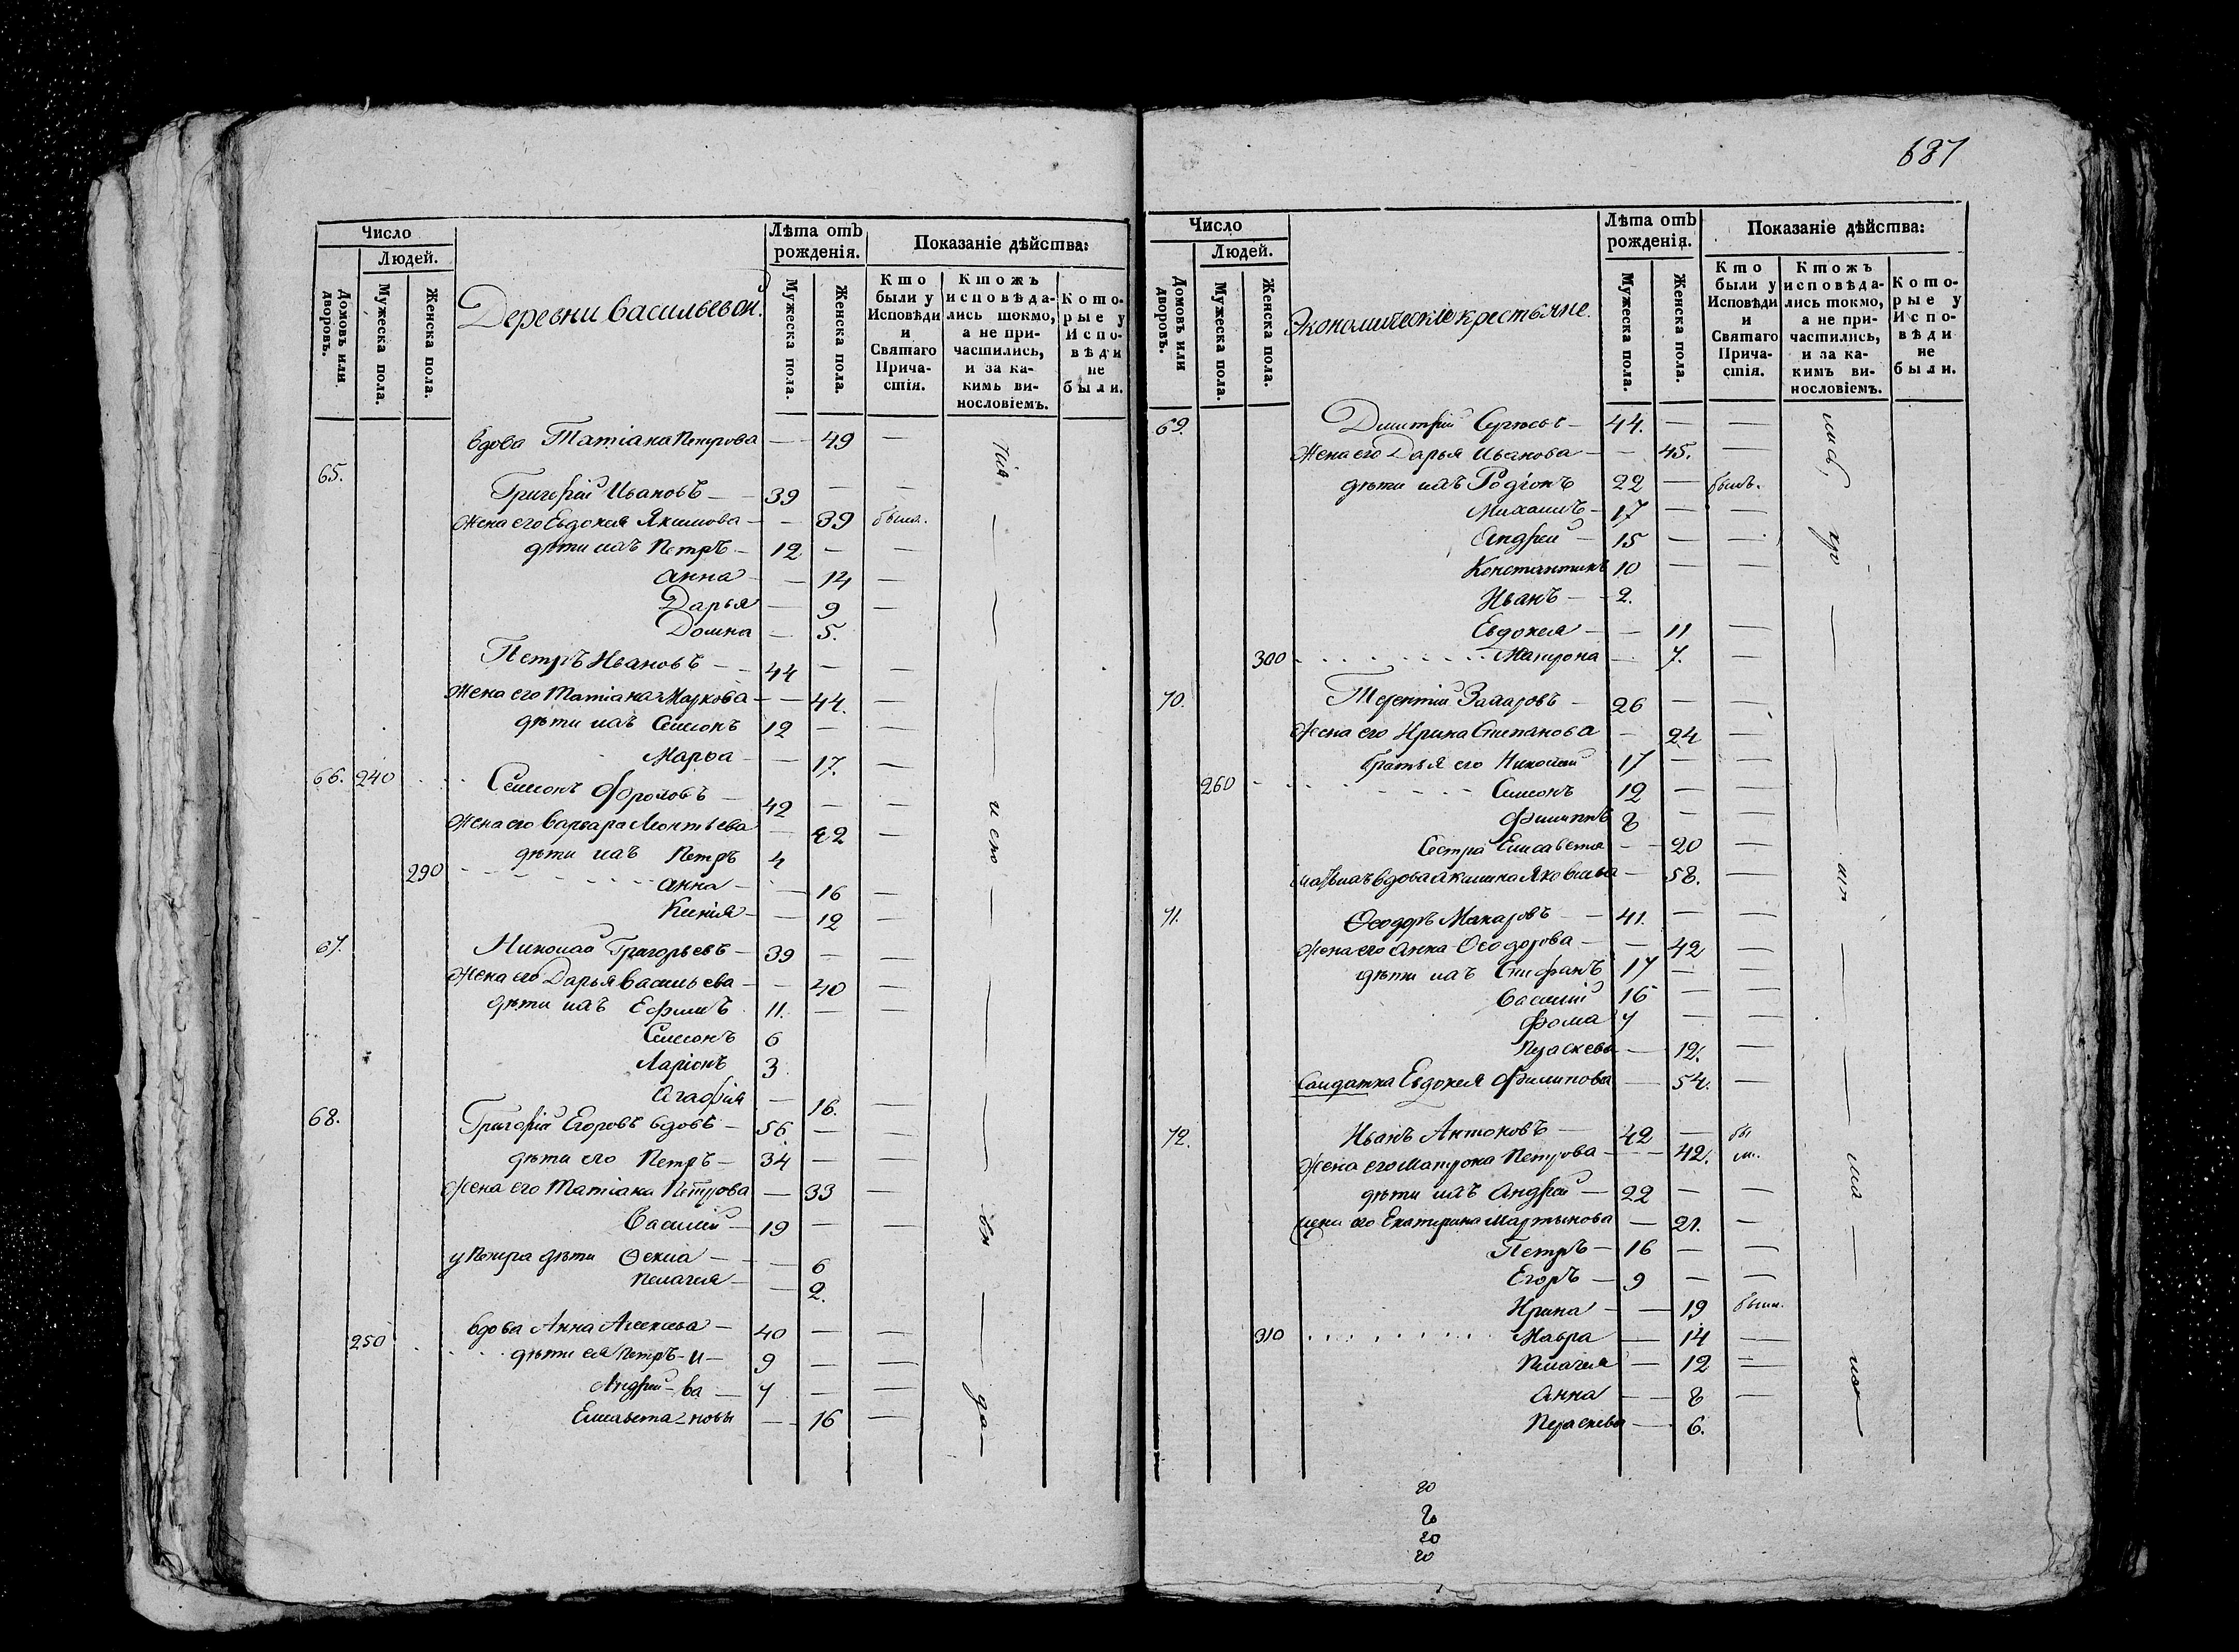 687
Число
Людей.
Домовъ или дворовъ.
Мужеска пола.
Женска пола.
Деревни Васильевой.
Лѣта отъ рожденія.
Мужеска пола.
Женска пола.
Показаніе дѣйства:
Кто были у Исповѣди и Святаго Причастія.
Ктожъ исповѣдались токмо, а не причастились, и за какимъ винословіемъ.
Которые у Исповѣди не были.
вдова Татіана Петрова — 49 —
65.
Григорій Ивановъ — 39 — —
жена его Евдокея Якимова — — 39 была.
дѣти ихъ Петръ — 12 — —
Анна — — 14 —
Дарья — 9 —
Домна — 5.
Петръ Ивановъ — 44 — —
жена его Татіана Маркова — — 44. —
дѣти ихъ Семіонъ 12 — —
Марѳа — — 17. —
66. 240 Семіонъ Фроловъ — 42 — —
жена его Варвара Леонтьева — 42 —
дѣти ихъ Петръ 4
290 Анна — — 16 —
Ксенія — — 12 —
67. Николай Григорьевъ — 39 — —
жена его Дарья Васильева — — 40 —
дѣти ихъ Ефимъ 11. — —
Семіонъ 6
Ларіонъ 3
Агафія — 16. —
68. Григорій Егоровъ вдовъ — 56 — —
дѣти его Петръ — 34 — —
жена его Татіана Петрова — 33 —
Василій — 19 — —
у Петра дѣти Ѳекла — — 6
Пелагея — — 2.
вдова Анна Алексѣева — 40 — —
250 дѣти ея Петръ - И — 9 — —
Андрей - ва — 7 — —
Елисавета - новы — 16 —
Число
Людей.
Домовъ или дворовъ.
Мужеска пола.
Женска пола.
Экономическіе крестьяне.
Лѣта отъ рожденія.
Мужеска пола.
Женска пола.
Показаніе дѣйства:
Кто были у Исповѣди и Святаго Причастія.
Ктожъ исповѣдались токмо, а не причастились, и за какимъ винословіемъ.
Которые у Исповѣди не были.
69. Димитрій Сергѣевъ — 44. — —
жена его Дарья Иванова — — 45. —
дѣти ихъ Родіонъ 22 — былъ.
Михаилъ — 17 — —
Андрей — 15 — —
Константинъ 10 — —
Иванъ — 2.
Евдокея — — 11 —
300 Матрона — 7. —
70. Терентій Захаровъ — 26 — —
жена его Ирина Степанова — 24 —
братья его Николай 17 — —
260 Семіонъ 12 — —
Филиппъ 8 — —
сестра Елисавета — — 20 —
мать ихъ вдова Акилина Яковлева — 58. —
71. Ѳеодоръ Макаровъ — — 41. — —
жена его Анна Ѳеодорова — — 42 —
дѣти ихъ Стефанъ 17 — —
Василій 16 — —
Фома 7 — —
Праскева — 12. —
Салдатка Евдокея Филипова — 54. —
72. Иванъ Антоновъ — 42 — бы
жена его Матрона Петрова — — 42. ли.
дѣти ихъ Андрей — 22 — —
жена его Екатерина Мартынова — 21. —
Петръ — 16 — —
Егоръ — 9 — —
Ирина — — 19 была.
310 Мавра — 14 —
Пелагея — 12 —
Анна — — 8 —
Праскева — 6.
20
20
20
20